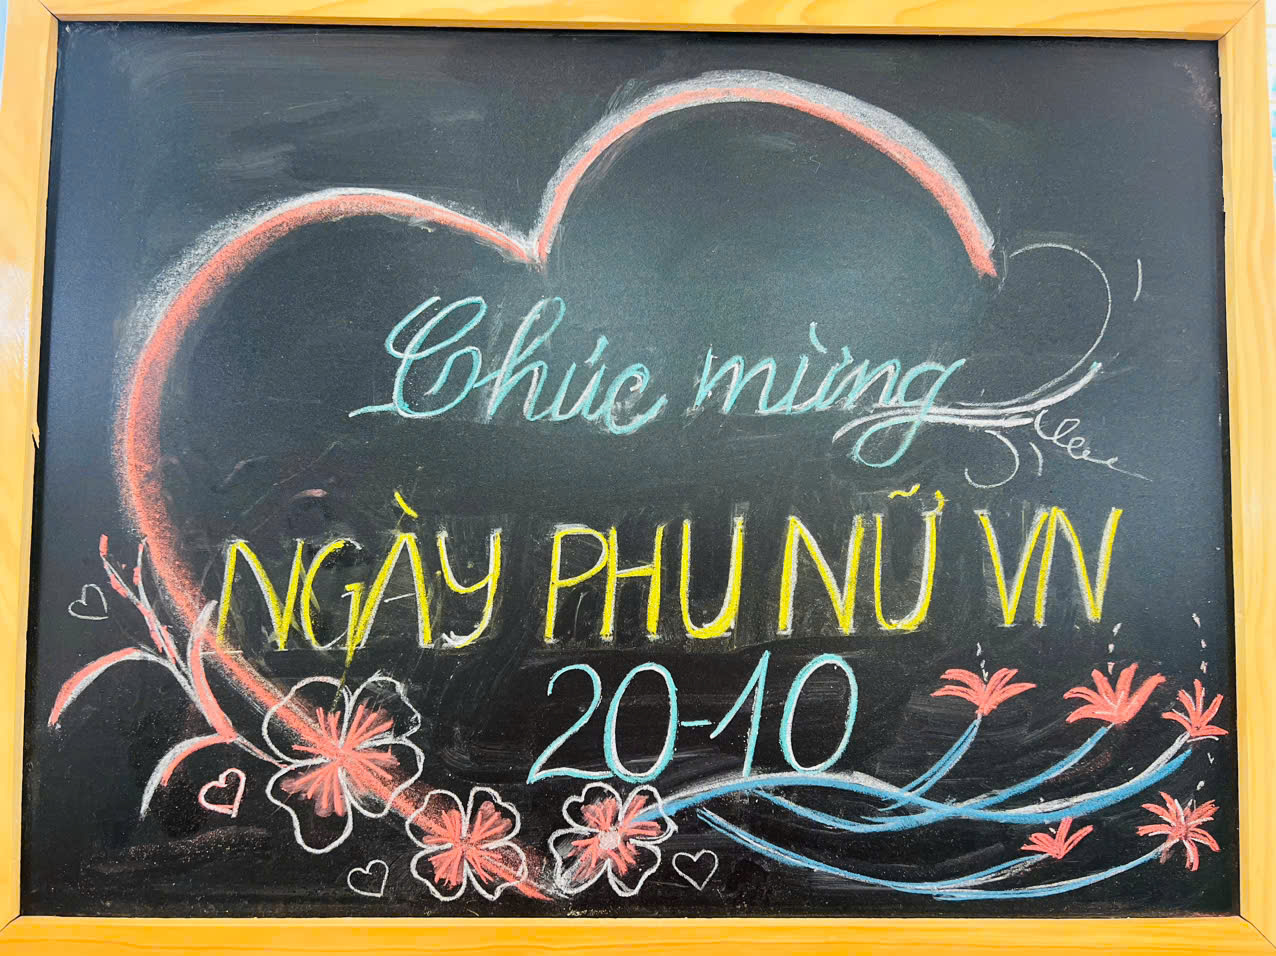 Chúc mừng
NGÀY PHU NỮ VN
20-10